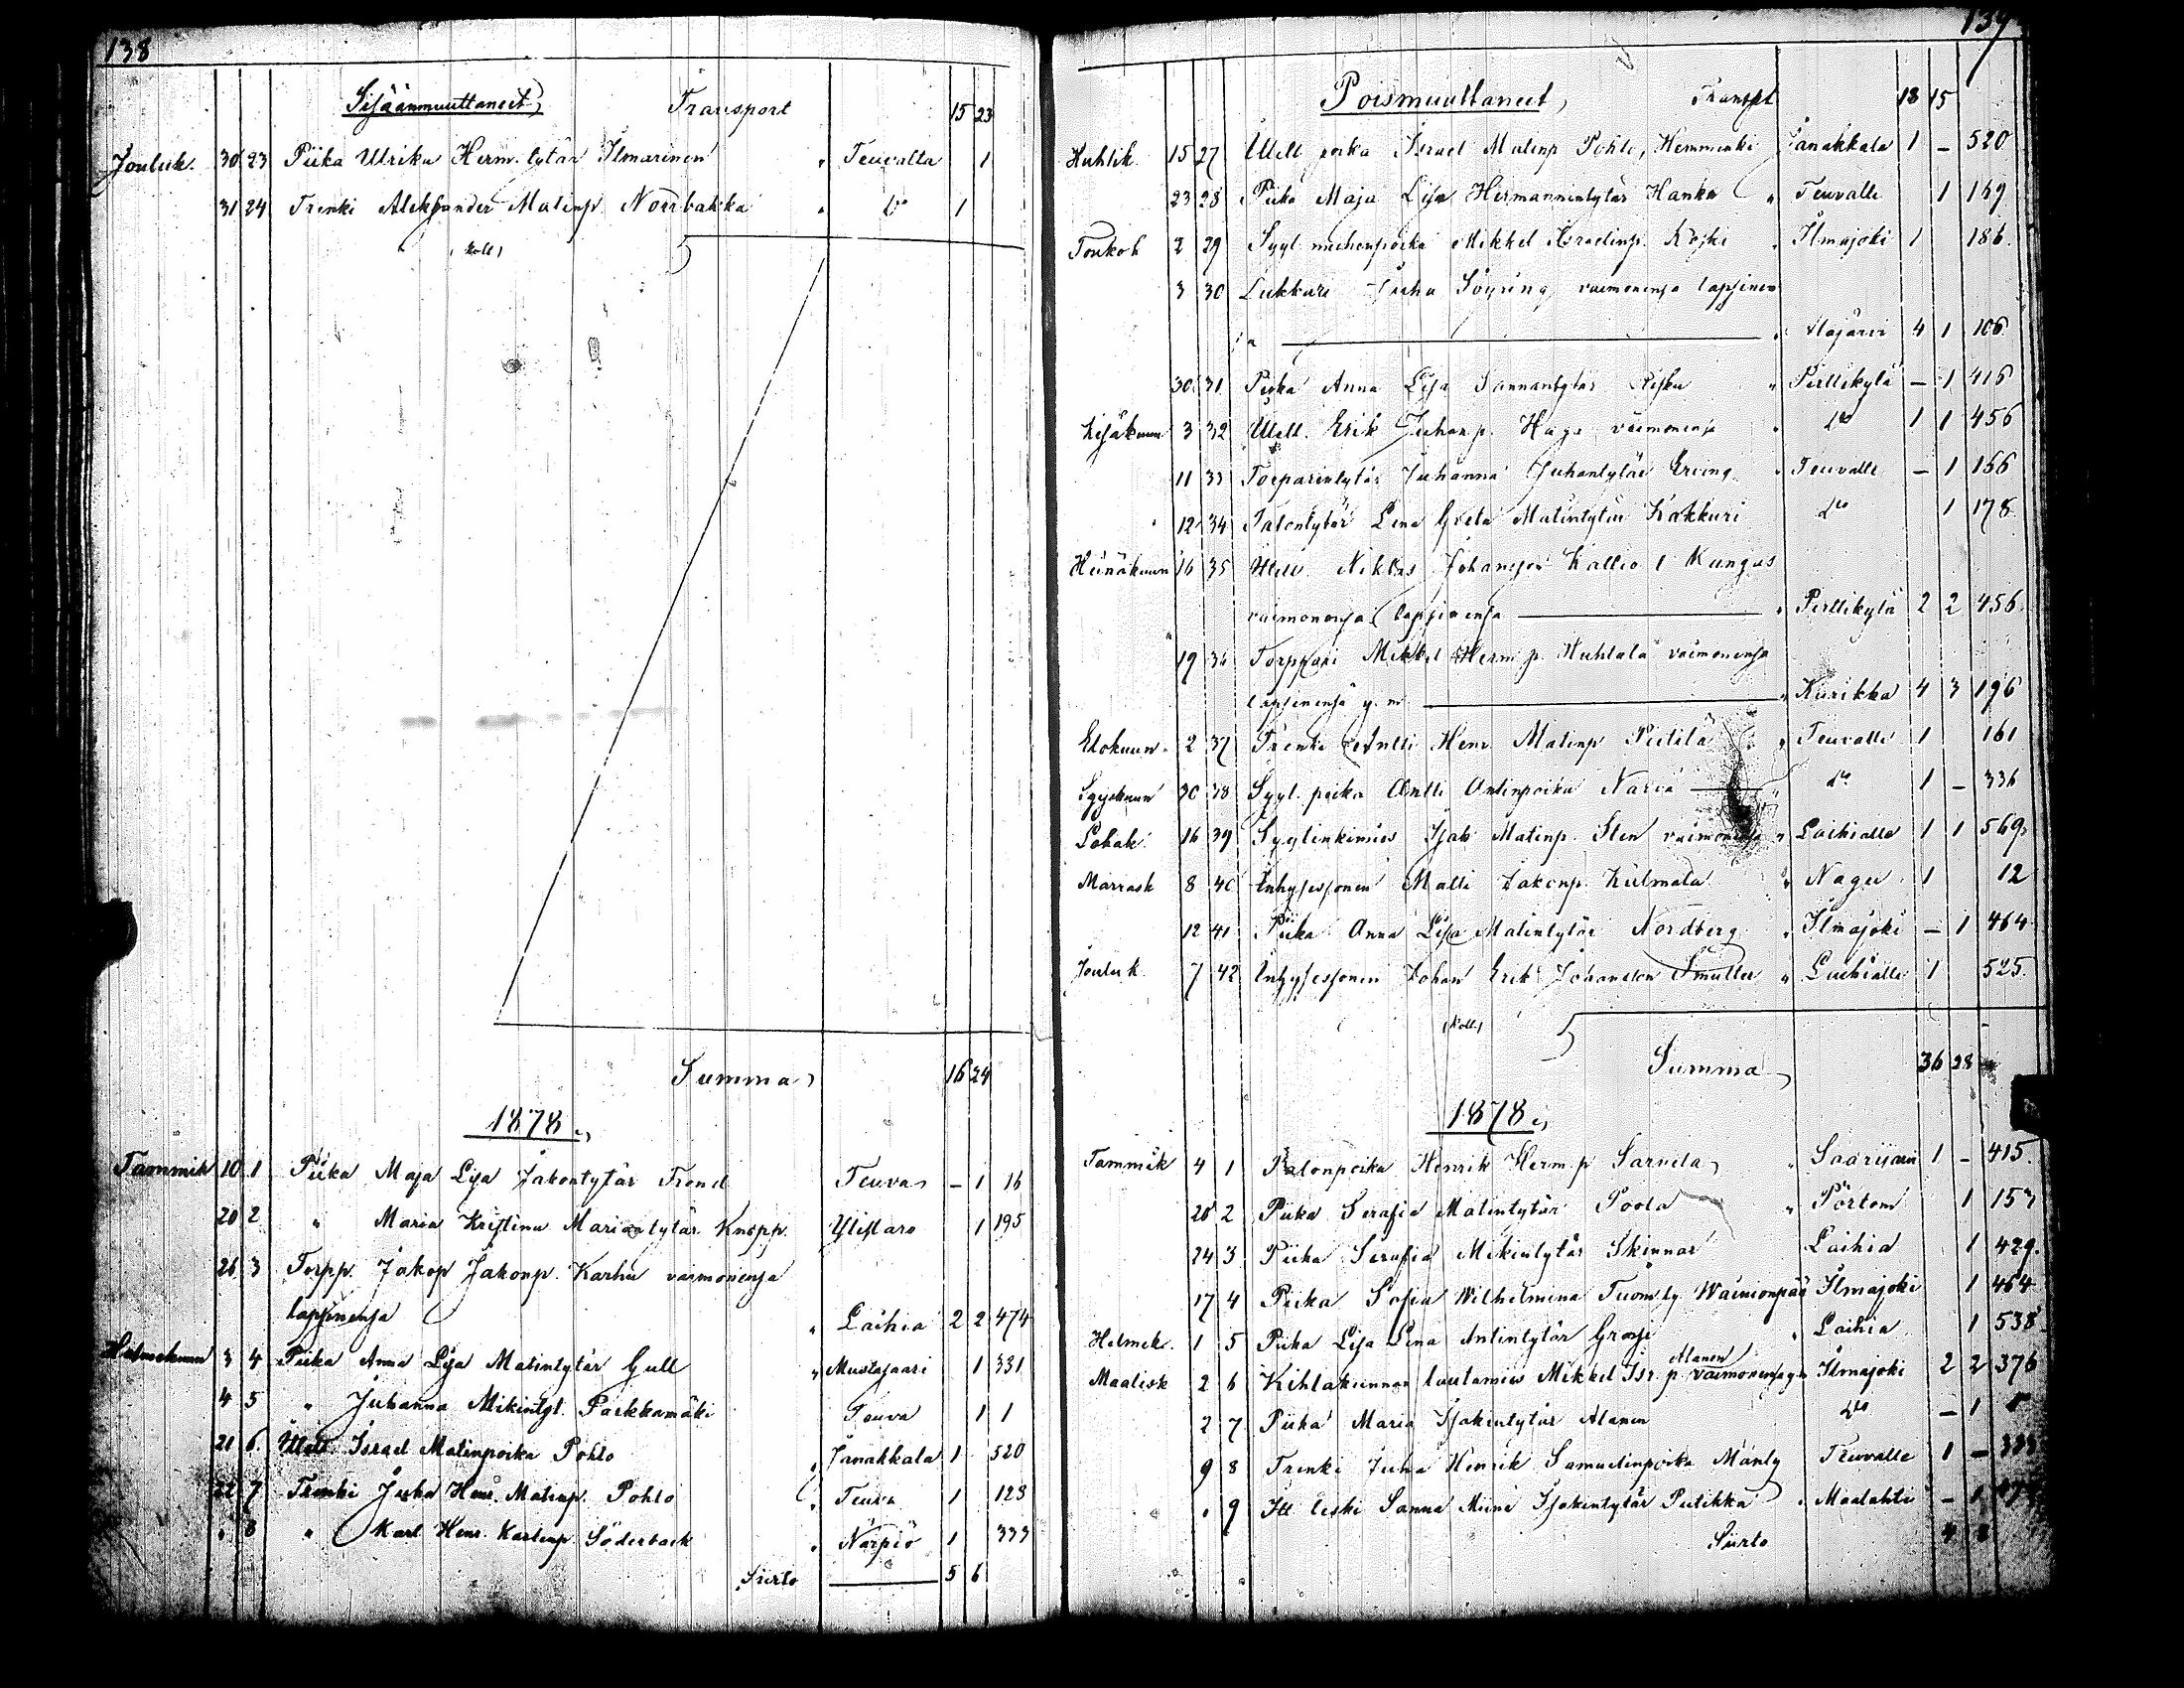 138
Sisäänmuuttaneet, Transport 15 23
Jouluk. 30 23 Piika Ulrika Herm. tytär Ilmarinen " Teuvalta 1
31 24 Trenki Aleksander Matinp. Norrbakka " do 1
(Koll)
Summa, 16 24
1878.
Tammik 10 1 Piika Maja Lisa Jakontytär Trond Teuva — 1 16
20 2 " Maria Kristina Mariantytär Knopp. Ylistaro 1 195
26 3 Torpp. Jakop Jakonp. Karhu vaimonensa
lapsinensa " Laihia 2 2 474
3 4 Piika Anna Lisa Matintytär Gull " Mustasaari 1 331
4 5 " Juhanna Mikintyt. Parkkamäki Teuva 1 1
21 6 Itsell. Israel Matinpoika Pohto " Janakkala 1 520
22 7 Trenki Juha Henr. Matinp. Pohto " Teuva 1 123
" 8 " Karl Henr. Karlinp Söderback " Närpiö 1 333
Siirto — 5 6
139
Poismuuttaneet, Transpt 18 15
Huhtik. 15 27 Itsell poika Israel Matinp Pohto, Hemminki Janakkala 1 — 520
23 28 Piika Maja Lisa Hermannintytär Hanka " Teuvalle 1 169
Toukok 2 29 Syyt. miehenpoika Mikkel Israelinp. Koski " Ilmajoki 1 186.
3 30 Lukkari Juha Söyring, vaimonensa lapsinen
sa — " Alajärvi 4 1 106.
30 31 Piika Anna Lisa Sannantytär " Pirttikylä — 1 416
Kesäkuun 3 32 Itsell. Erik Juhanp. Haga vaimonensa " do 1 1 456
11 33 Torparintytär Juhanna Juhantytär Erving " Teuvalle — 1 166
12 34 Talontytär Lena Greta Matintytär Kakkuri do 1 178
Heinäkuun 16 35 Itsell. Niklas Johansson Kallio l Kungas
vaimonensa lapsinensa — " Pirttikylä 2 2 456.
19 36 Torppari Mikkel Herm. p. Huhtala vaimonensa
lapsinensa y. m. — " Kurikka 4 3 196
Elokuun. 2 37 Trenki Antti Henr. Matinp Pietilä " Teuvalle 1 161
Syyskuun 30 38 Syyt. poika Antti Antinpoika Narva — " do 1 — 336
Lokak. 16 39 Syytinkimies Isak Matinp. Sten vaimonensa " Laihialle 1 1 569
Marrask 8 40 Inhysesjonen Matti Jakonp. Kulmala " Nagu 1 12
12 41 Piika Anna Lisa Matintytär Nordberg " Ilmajoki — 1 464
Jouluk 7 42 Inhysesjonen Johan Erik Johansson Smulter " Laihialle 1 525.
(Koll)
Summa, 36 28
1878.
Tammik 4 1 Talonpoika Henrik Herm. p Sarvela, " Saarijärvi 1 — 415.
20 2 Piika Serafia Matintytär Poola " Pörtom 1 153
24 3 Piika Serafia Mikintytär Skinnar Laihia 1 429.
17 4 Piika Sofia Wilhelmina Tuom. ty. Wainionpää Ilmajoki 1 464
Helmik. 1 5 Piika Lisa Lena Antintytär Grass " Laihia 1 538
Maalisk 2 6 Kihlakunnan lautamies Mikkel Isr. p. Alanen vaimonensa y. m Ilmajoki 2 2 376
2 7 Piika Maria Isakintytär Alanen do — 1
9 8 Trenki Juha Henrik Samuelinpoika Mänty Teuvalle 1 — 333
" 9 Its leski Sanna Miina Isakintytär Putikka " Maalahti — 1
Siirto 4 8